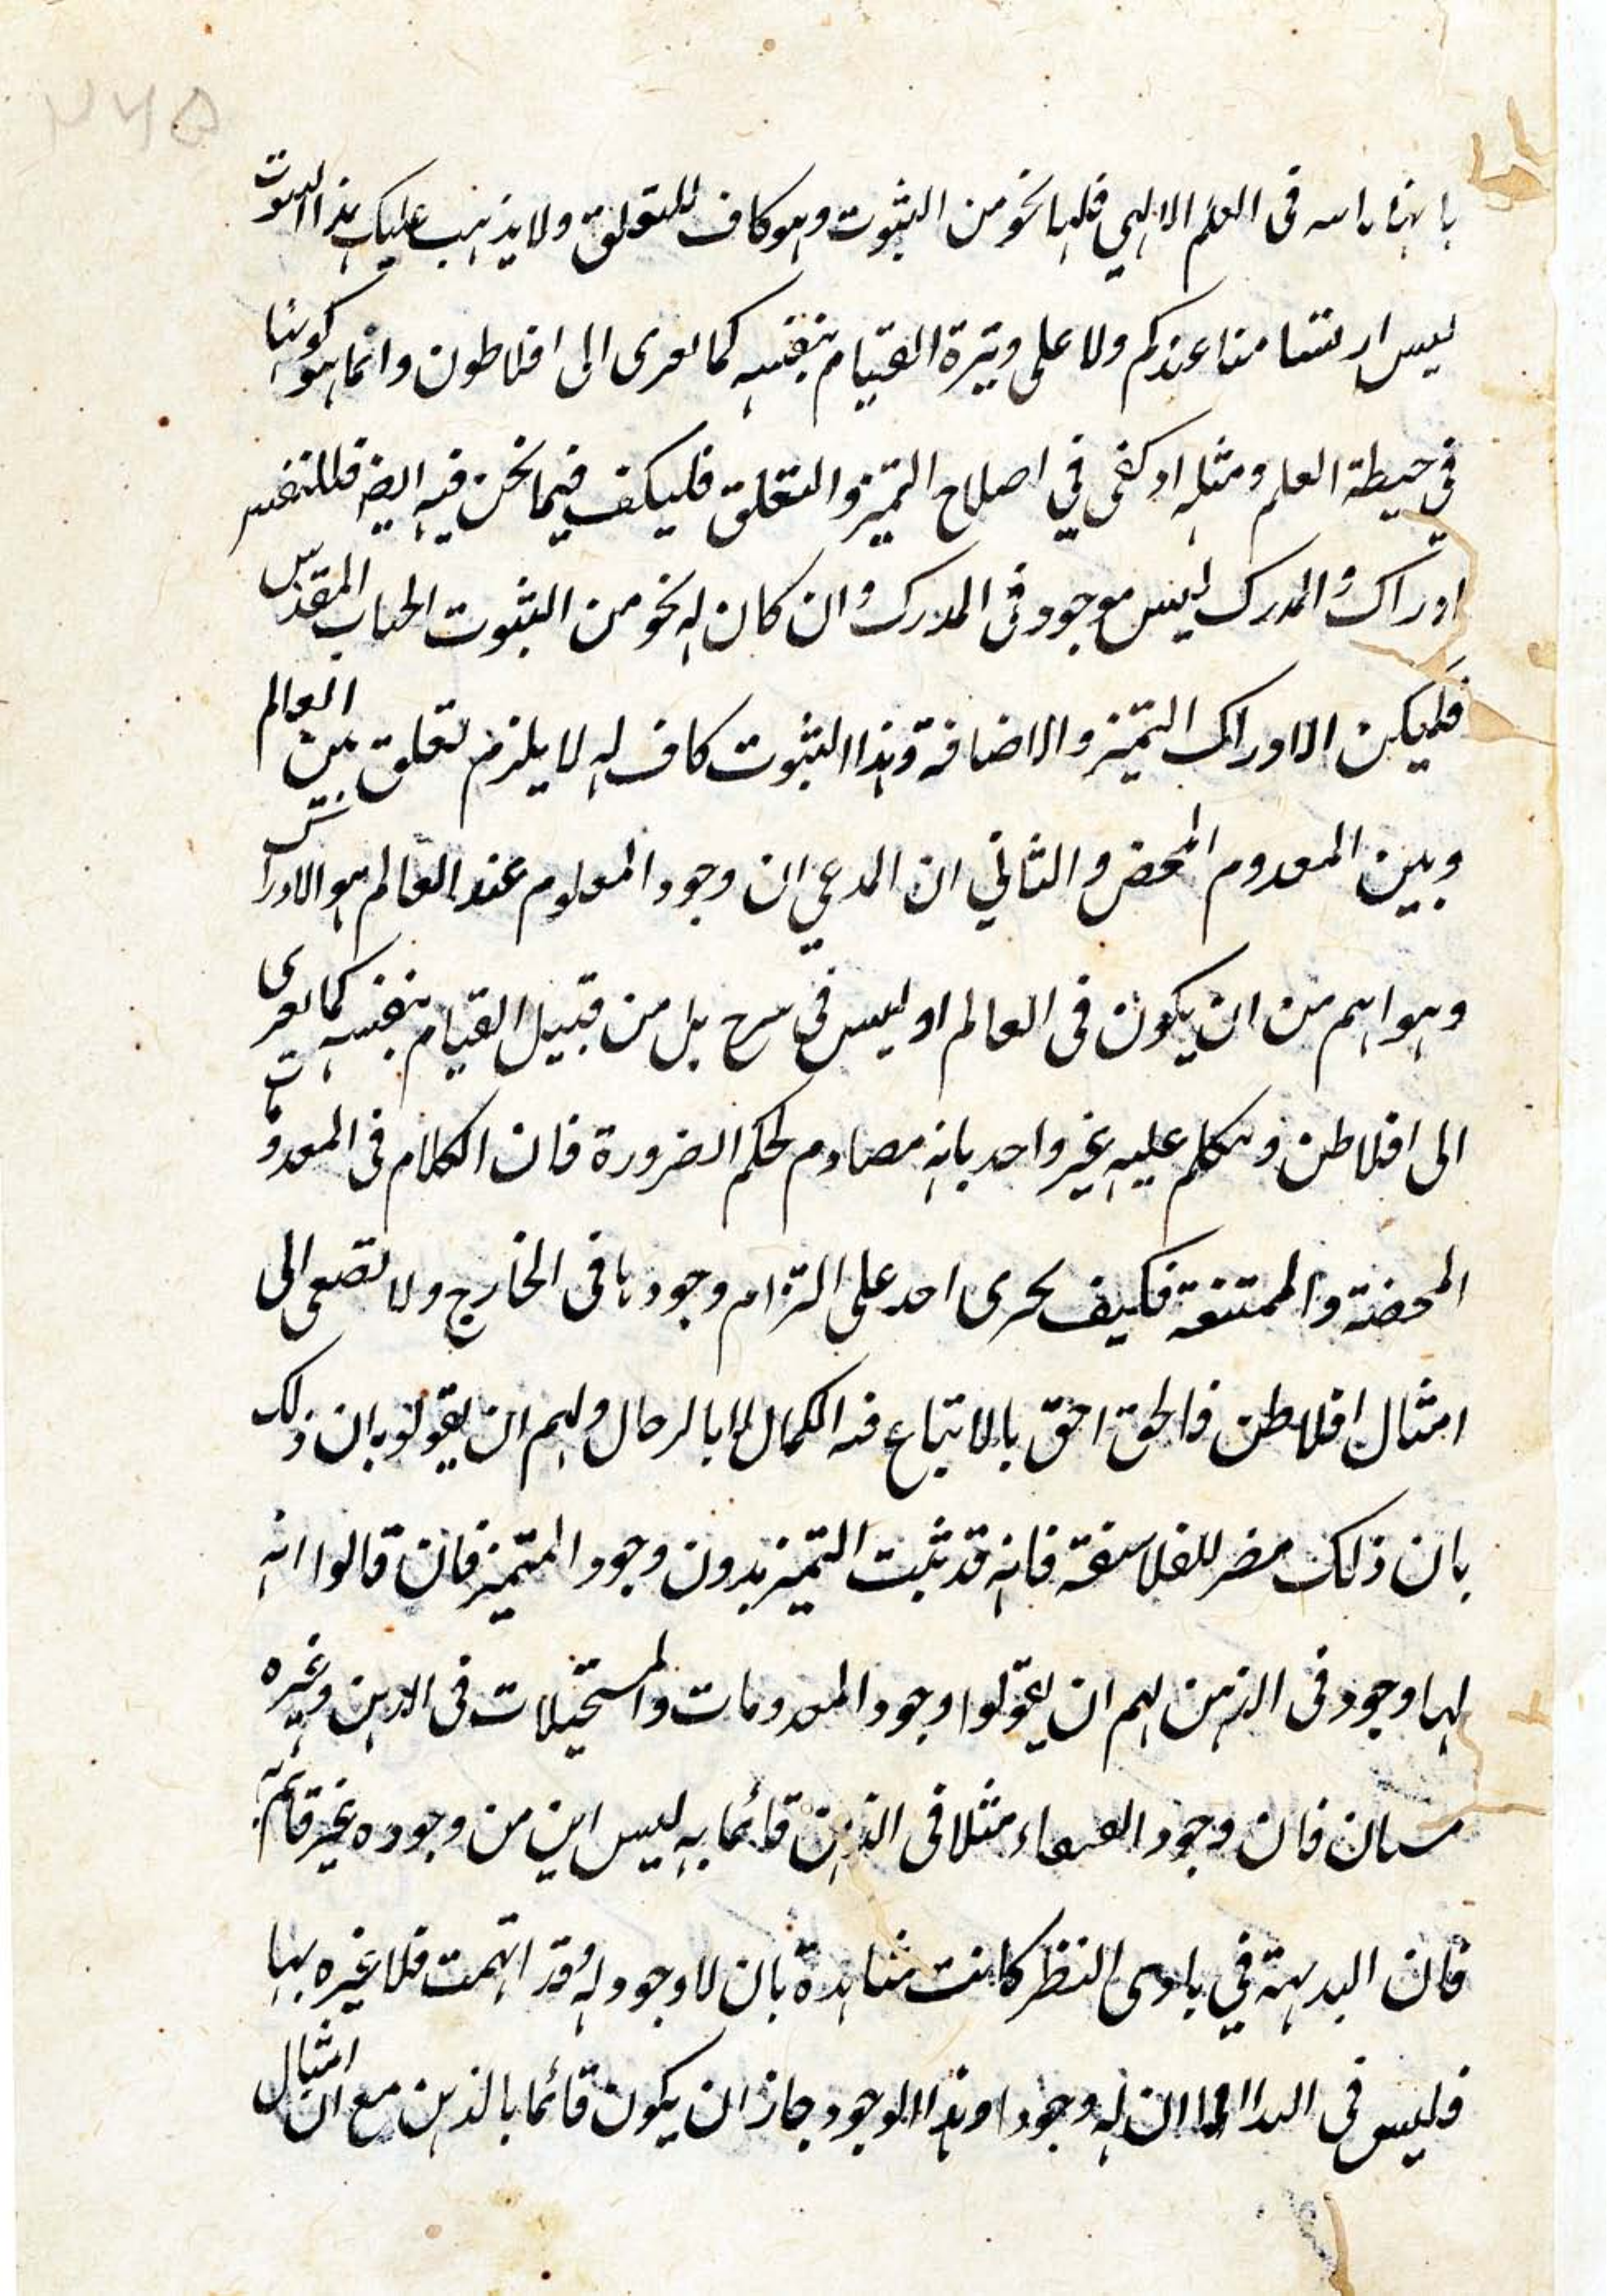 ٢٦٥
فى العلم الالهي فلها نحو من الثبوت وهو كاف للتعلق ولا يذهب عليك هذا الثبوت
ليس منا عندكم ولا على وتيرة القيام بنفسه كما يعرى الى افلاطون وانما هو كونها
في حيطة العلم ومثله اذ كفى في اصلاح التميز والتعلق فليكف فيما نحن فيه ايضا
ادراك والمدرك ليس موجود فى المدرك وان كان له نحو من الثبوت المقدس
فليكن الادراك التميز والاضافة وهذا الثبوت كاف له لا يلزم تعلق بين العالم
وبين المعدوم المحض والثاني ان المدعي ان وجود المعلوم عند العالم هو الادراك
وهو اهم من ان يكون فى العالم او ليس في بل من قبيل القيام بنفسه كما يعرى
الى افلاطن وتكلم عليه غير واحد بانه مصادم لحكم الضرورة فان الكلام فى المعدومات
المحضة والممتنعة فكيف يجرى احد على التزام وجودها فى الخارج ولا تصغى الى
امثال افلاطن فالحق احق بالاتباع الكمال لا بالرجال ولهم ان يقولوا بان ذلك
بان ذلك مضر للفلاسفة فانه قد ثبت التميز بدون وجود المتميز فان قالوا انه
لها وجود فى الذهن لهم ان يقولوا وجود المعدومات والمستحيلات فى الذهن وغيره
سيان فان وجود العنقاء مثلا فى الذهن قائما به ليس اين من وجوده غير قائم به
فان البديهة في بادى النظر كانت شاهدة بان لا وجود له قد اتهمت فلا غيره بها
فليس فى ان له وجودا وهذا الوجود جاز ان يكون قائما بالذهن مع ان امثال